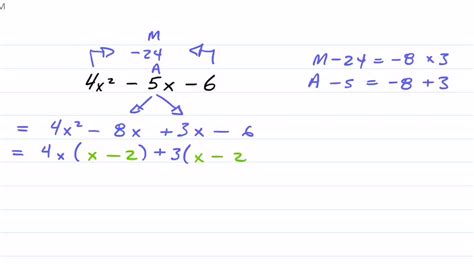 M
M
-24
A
4x² - 5x - 6
M -24 = -8 × 3
A -5 = -8 + 3
= 4x² - 8x + 3x - 6
= 4x(x - 2) + 3(x - 2